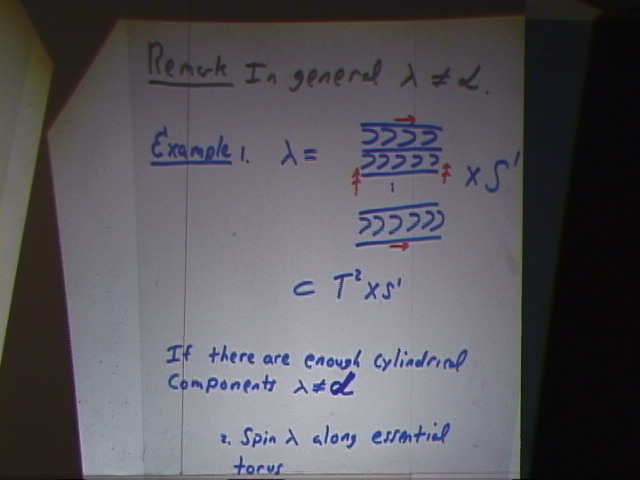 Remark In general λ ≠ α.
Example 1. λ = × S¹
⊂ T² × S¹
If there are enough cylindrical
components λ ≠ α
2. Spin λ along essential
torus